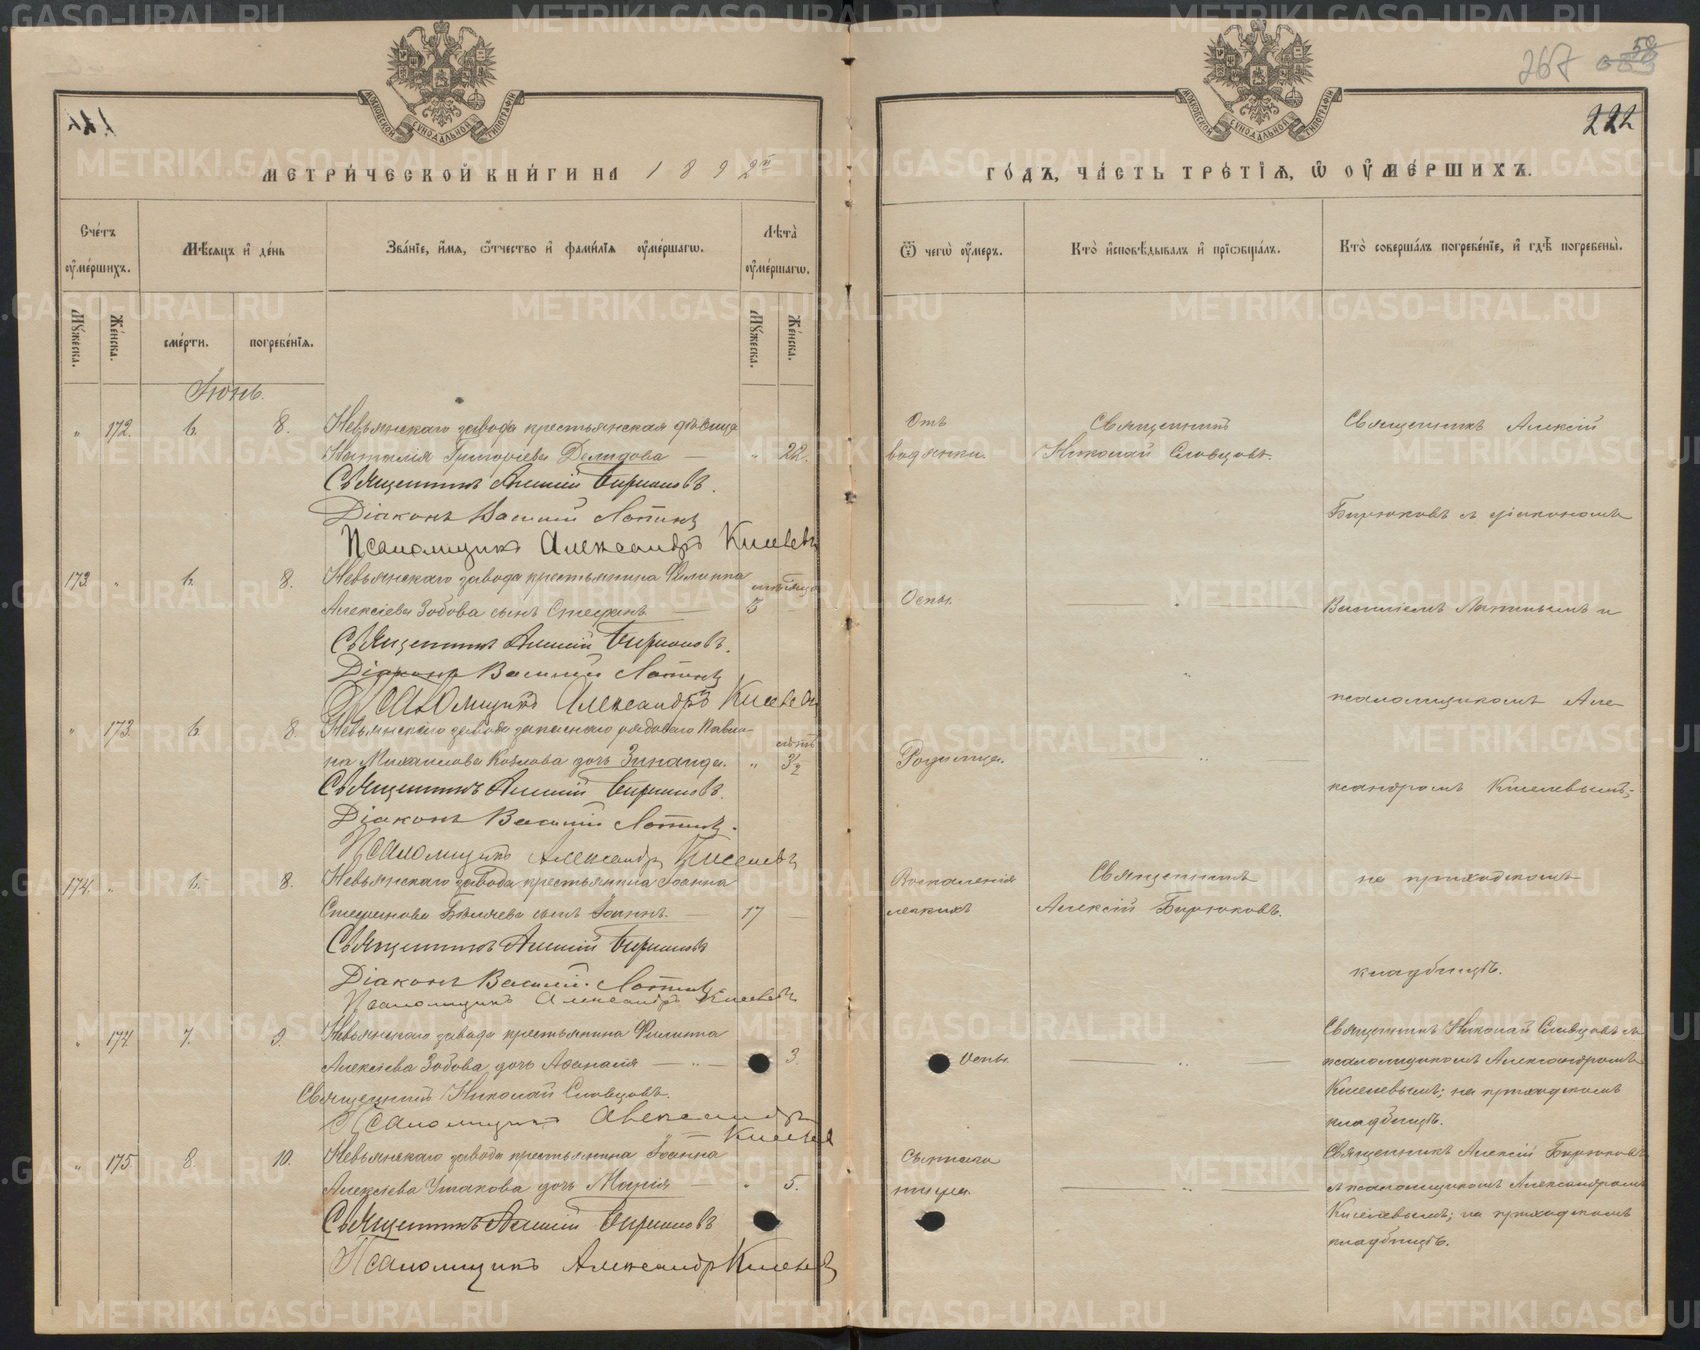 267
222
МЕТРИЧЕСКОЙ КНИГИ НА 1892й
ГОДЪ, ЧАСТЬ ТРЕТІЯ, Ѡ ОУМЕРШИХЪ.
Счетъ оумершихъ.
Мѣсяцъ и день
Званіе, имя, ѿчество и фамилія оумершагѡ.
Лѣта оумершагѡ.
Ѿ чегѡ оумеръ.
Кто исповѣдывалъ и пріобщалъ.
Кто совершалъ погребеніе, и гдѣ погребены.
Мужеска.
Женска.
смерти.
погребенія.
Мужеска.
Женска.
Іюнь.
" 172. 6. 8. Невьянскаго завода крестьянская дѣвица
Наталія Григоріева Демидова — " 22.
Священникъ Алексій Бирюковъ.
Діаконъ Василій Лопинъ
Псаломщикъ Александръ Киселевъ
Отъ водянки.
Священникъ
Николай Словцовъ.
173. " 6. 8. Невьянскаго завода крестьянина Филиппа
Алексіева Зобова сынъ Стефанъ — 3
Священникъ Алексій Бирюковъ.
Діаконъ Василій Лопинъ
Псаломщикъ Александръ Киселевъ
Оспы.
" 173. 6. 8. Невьянскаго завода запаснаго рядоваго Павли-
на Михаилова Козлова дочь Зинаида. " 3½
Священникъ Алексій Бирюковъ.
Діаконъ Василій Лопинъ.
Псаломщикъ Александръ Киселевъ
Родимца.
174. " 6. 8. Невьянскаго завода крестьянина Іоанна
Стефанова Бѣляева сынъ Іоаннъ. — 17 —
Священникъ Алексій Бирюковъ
Діаконъ Василій Лопинъ
Псаломщикъ Александръ Киселевъ
Воспаленія
легкихъ
Священникъ
Алексій Бирюковъ.
Священникъ Алексій
Бирюковъ съ діакономъ
Василіемъ Лопинымъ и
псаломщикомъ Але-
ксандромъ Киселевымъ;
на приходскомъ
кладбищѣ.
" 174. 7. 9. Невьянскаго завода крестьянина Филиппа
Алексіева Зобова дочь Аѳанасія — " — 3.
Священникъ Николай Словцовъ.
Псаломщикъ Александръ
Киселевъ
Оспы.
Священникъ Николай Словцовъ съ
псаломщикомъ Александромъ
Киселевымъ; на приходскомъ
кладбищѣ.
" 175. 8. 10. Невьянскаго завода крестьянина Іоанна
Алексіева Ушакова дочь Марія — " 5.
Священникъ Алексій Бирюковъ
Псаломщикъ Александръ Киселевъ
Священникъ Алексій Бирюковъ
съ псаломщикомъ Александромъ
Киселевымъ; на приходскомъ
кладбищѣ.
METRIKI.GASO-URAL.RU